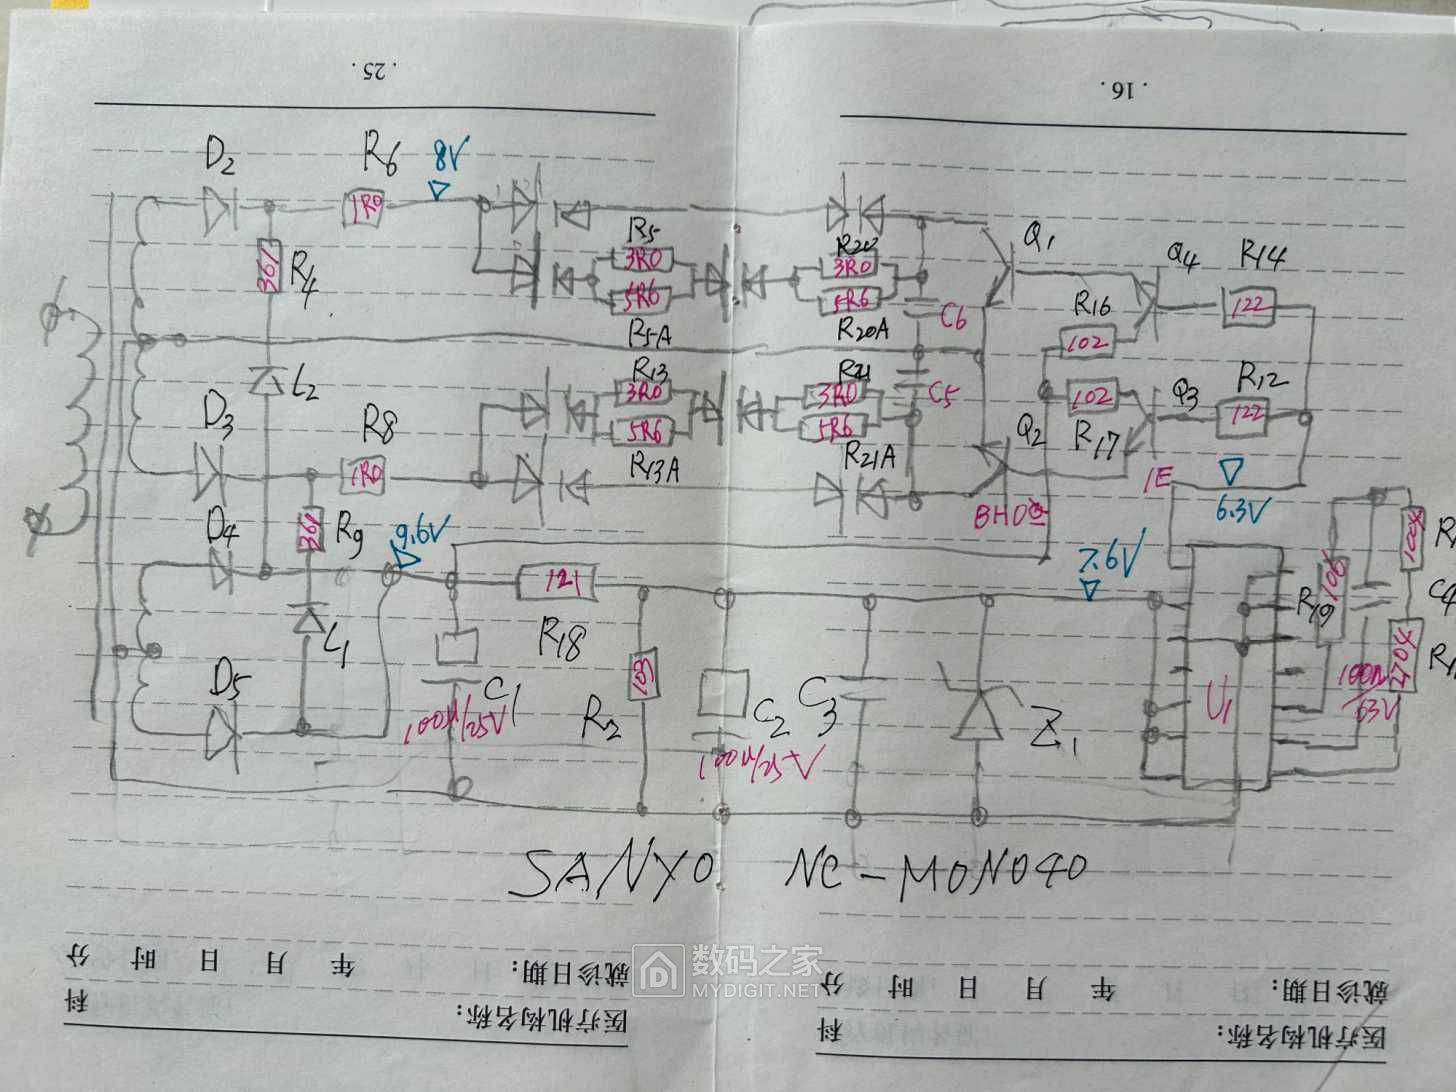 . 25 .
. 16 .
D2
R6
8V
1R0
361
R4
R5
3R0
5R6
R5-A
R20
3R0
5R6
R20A
C6
Q1
Q4
R14
122
R16
102
L2
D3
R8
1R0
R13
3R0
5R6
R13A
R21
3R0
5R6
R21A
C5
Q2
102
R17
Q3
R12
122
1E
6.3V
D4
361
R9
9.6V
7.6V
121
R18
L1
D5
C1
100μ/25V
R2
103
C2
100μ/25V
C3
Z1
U1
R19
C4
SANYO NC-MONO40
数码之家
MYDIGIT.NET
就诊日期: 年 月 日 时 分
医疗机构名称: 科
就诊日期: 年 月 日 时 分
医疗机构名称: 科